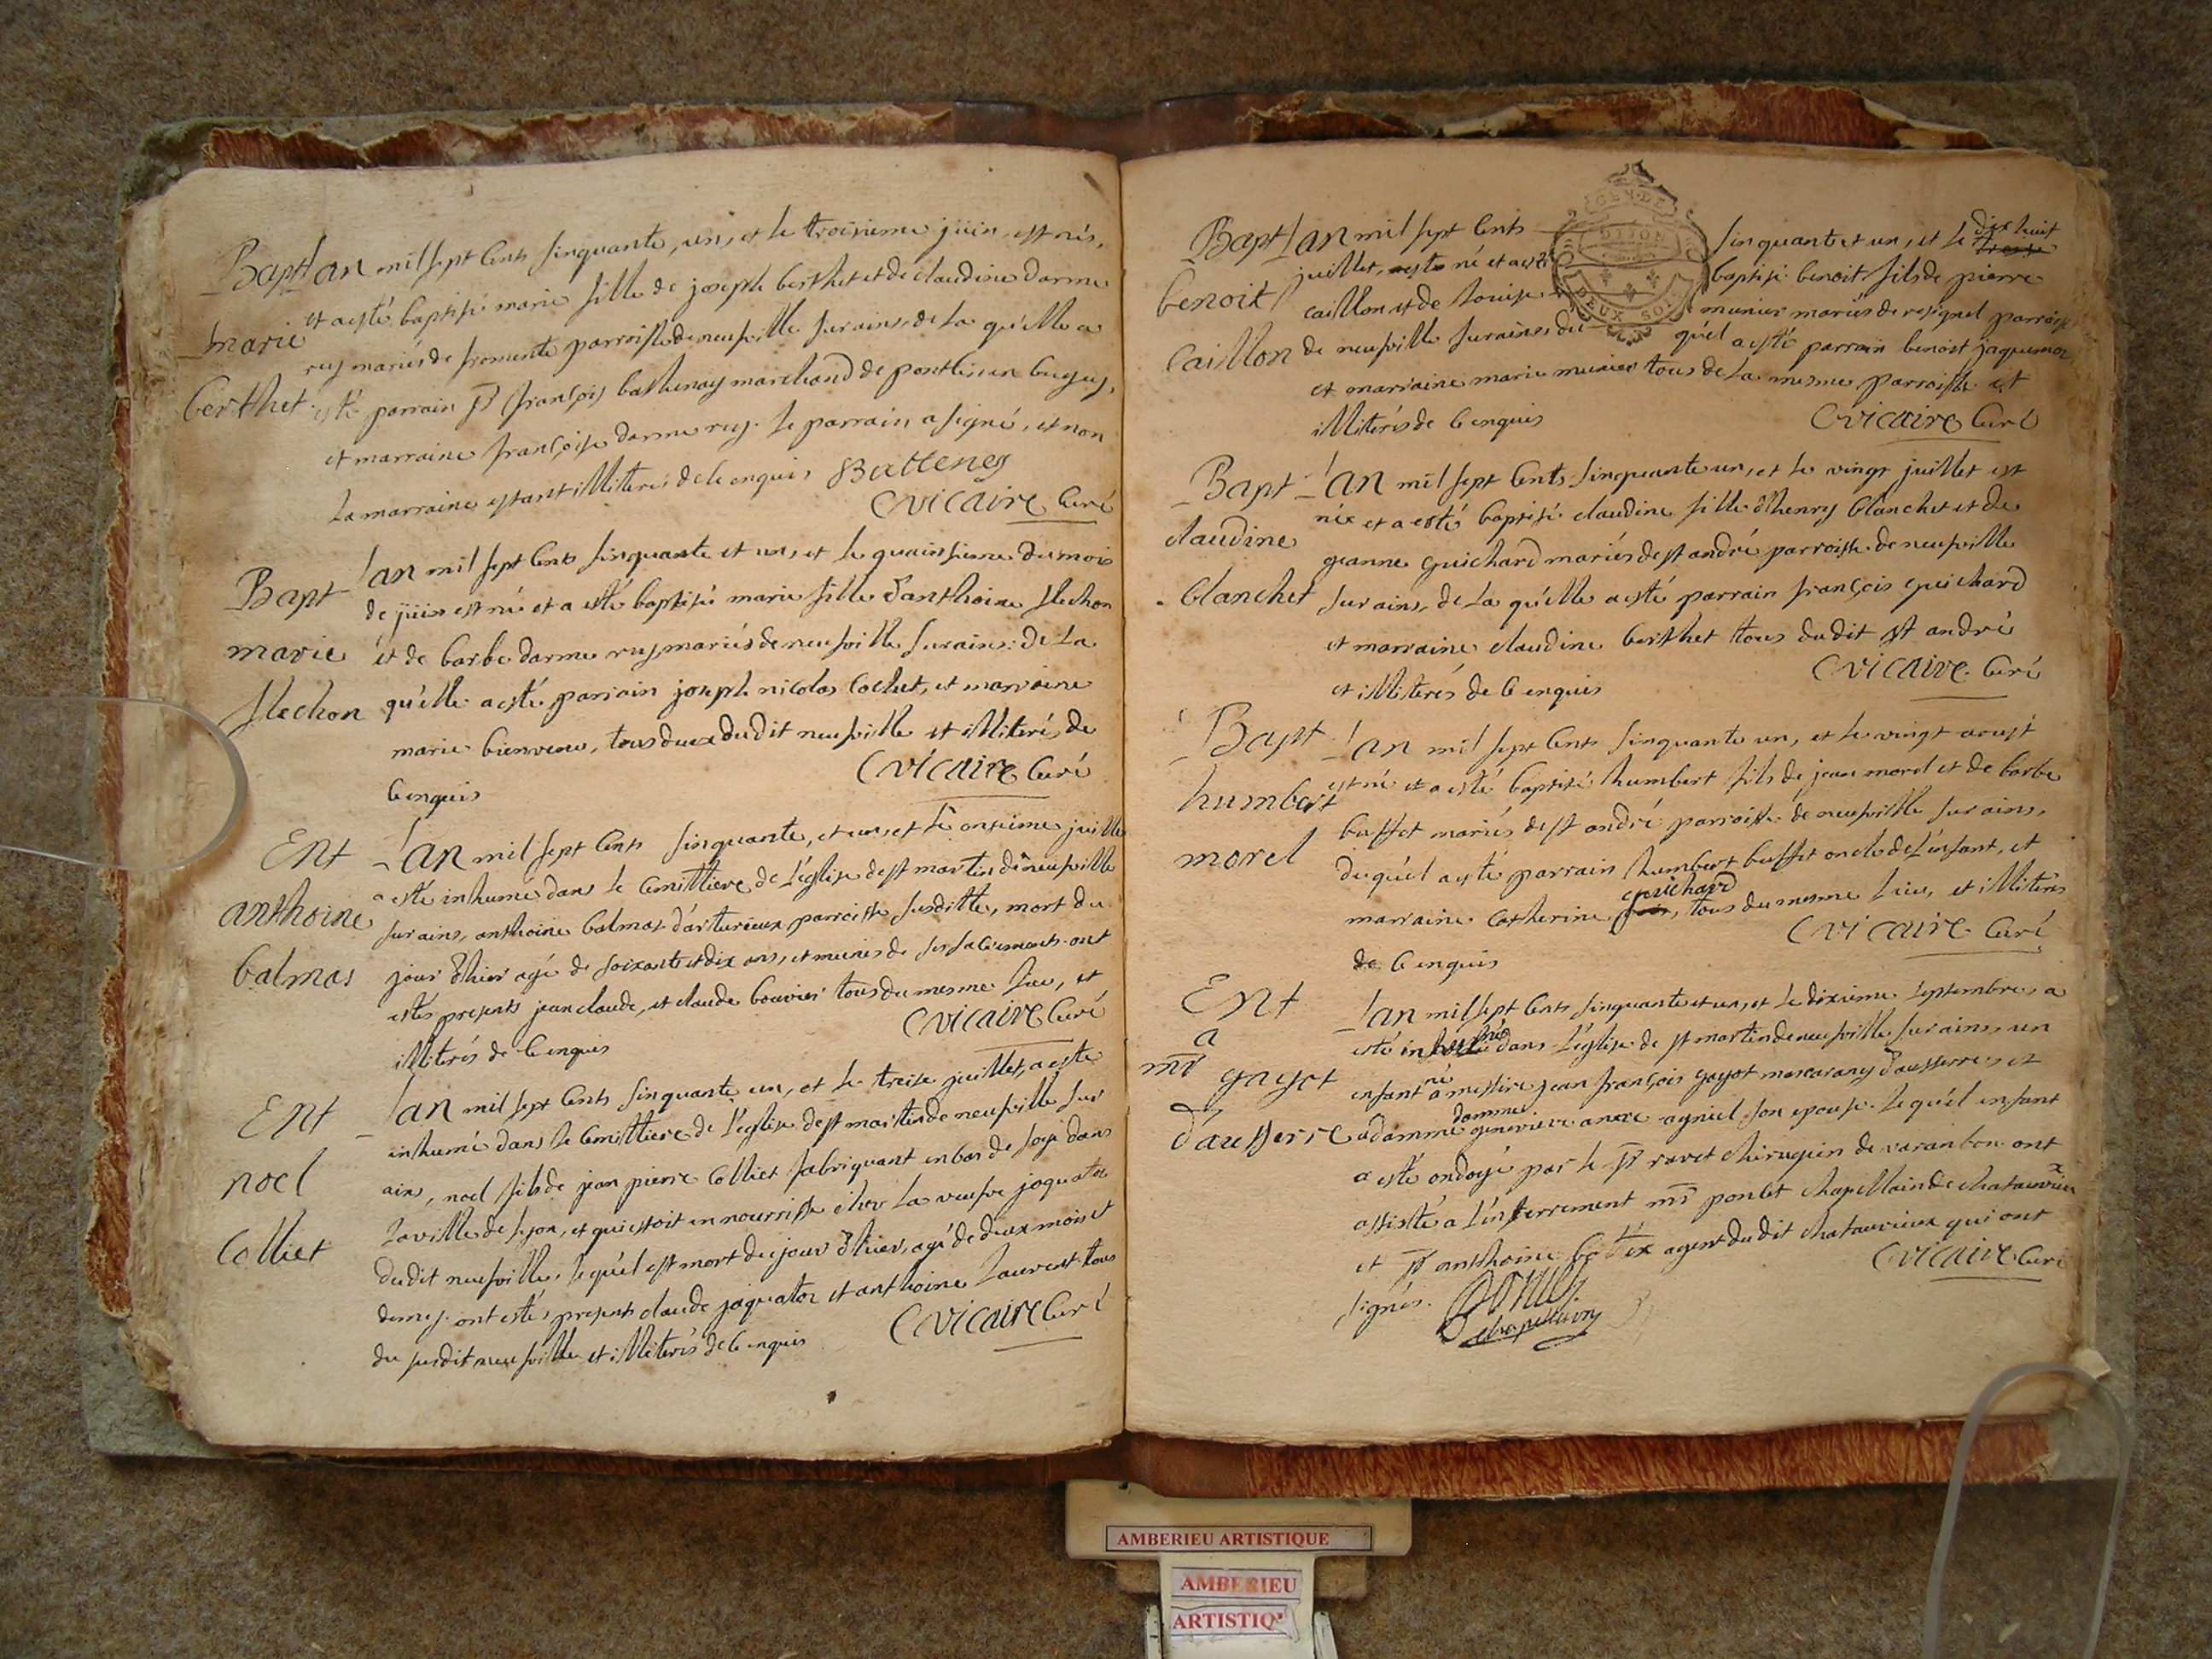 Bapt l'an mil sept Cents sinquante, un, et le troisieme juin, est née,
marie et a esté baptisé marie fille de joseph berthet et de claudine darme
ruy mariés de fromente parroisse de neufville sur ains, de la qu'elle a
berthet esté parrain sr françois bathenay marchand de pontlieu en bugey,
et marraine françoise darmeruy. le parrain a signé, et non
La marraine estant illiterés de ce enquis Batteney
Cvicaire Curé
Bapt l'an mil sept Cents sinquante et un, et le quainsieme du mois
de juin est né et a esté baptisé marie fille d'anthoine flechon
marie et de barbe darme ruy mariés de neufville sur ains: de La
flechon qu'elle a esté parrain joseph nicolas Cochet, et marraine
marie bienvenu, tous deux dudit neufville et illiterés de
Cvicaire Curé
Ce enquis
Ent l'an mil sept Cents sinquante, et un, et le onzieme juillet
a esté inhumé dans le Cemittiere de L'église de st martin de neufville
anthoine sur ains, anthoine balmas d'arturieux parroisse susditte, mort du
balmas jour d'hier agé de soixante et dix ans, et munis de ses sacrements ont
estés presents jean claude, et claude bouvier tous du mesme lieu, et
Cvicaire Curé
illiterés de Ce enques
Ent l'an mil sept Cents sinquante un, et le treise juillet, a esté
inhumé dans le Cemittiere de l'église de st martin de neufville sur
noel ains, noel fils de jean pierre Colliet fabriquant en bas de soye dans
Colliet La ville de lyon, et qui estoit en nourrisse chez La veufve jaquator
dudit neufville, le qu'el est mort du jour d'hier, agé de deux mois et
demy. ont estés presents claude jaquator et anthoine Laurent tous
Cvicaire Curé
du susdit neufville et illiterés de Ce enquis
GEN. DE
DIJON
DEUX SOLS
Bapt l'an mil sept Cents sinquante et un, et le dix huit
benoit juillet, est né et a esté baptisé benoit fils de pierre
caillon et de Louise munier mariés de resignel parroisse
Caillon de neufville sur ains du qu'el a esté parrain benoist jaquemoz
et marraine marie munier tous de La mesme parroisse et
illiterés de Ce enquis Cvicaire Curé
Bapt l'an mil sept Cents sinquante un, et le vingt juillet est
née et a esté baptisé claudine fille d'henry blanchet et de
claudine geanne guichard mariés de st andré parroisse de neufville
blanchet sur ains, de La qu'elle a esté parrain françois guichard
et marraine claudine berthet tous dudit st andré
Cvicaire. Curé
et illiterés de Ce enquis
Bapt l'an mil sept Cents sinquante un, et le vingt aoust
humbert est né et a esté baptisé humbert fils de jean morel et de barbe
buffet mariés de st andré parroisse de neufville sur ains,
morel du qu'el a esté parrain humbert buffet oncle de L'enfant, et
marraine Catherine guichard, tous du mesme Lieu, et illiterés
Cvicaire. Curé
de Ce enquis
Ent l'an mil sept Cents sinquante et un, et le dixieme septembre, a
a esté inhumé dans L'église de st martin de neufville sur ains, un
mr guyot enfant né a messire jean françois gayot mascarany d'ausserre, et
d'ausserre a damme genevieve anne agniel son epouse. Le qu'el enfant
a esté ondoyé par le sr ravet chirugien de varanbon ont
assisté a L'enterrement mr poncet chapellain de chatauvieux
et sr anthoine agent dudit chatauvieux qui ont
signés. Cvicaire Curé
Poncet
chapellain
AMBERIEU ARTISTIQUE
AMBERIEU
ARTISTIQ